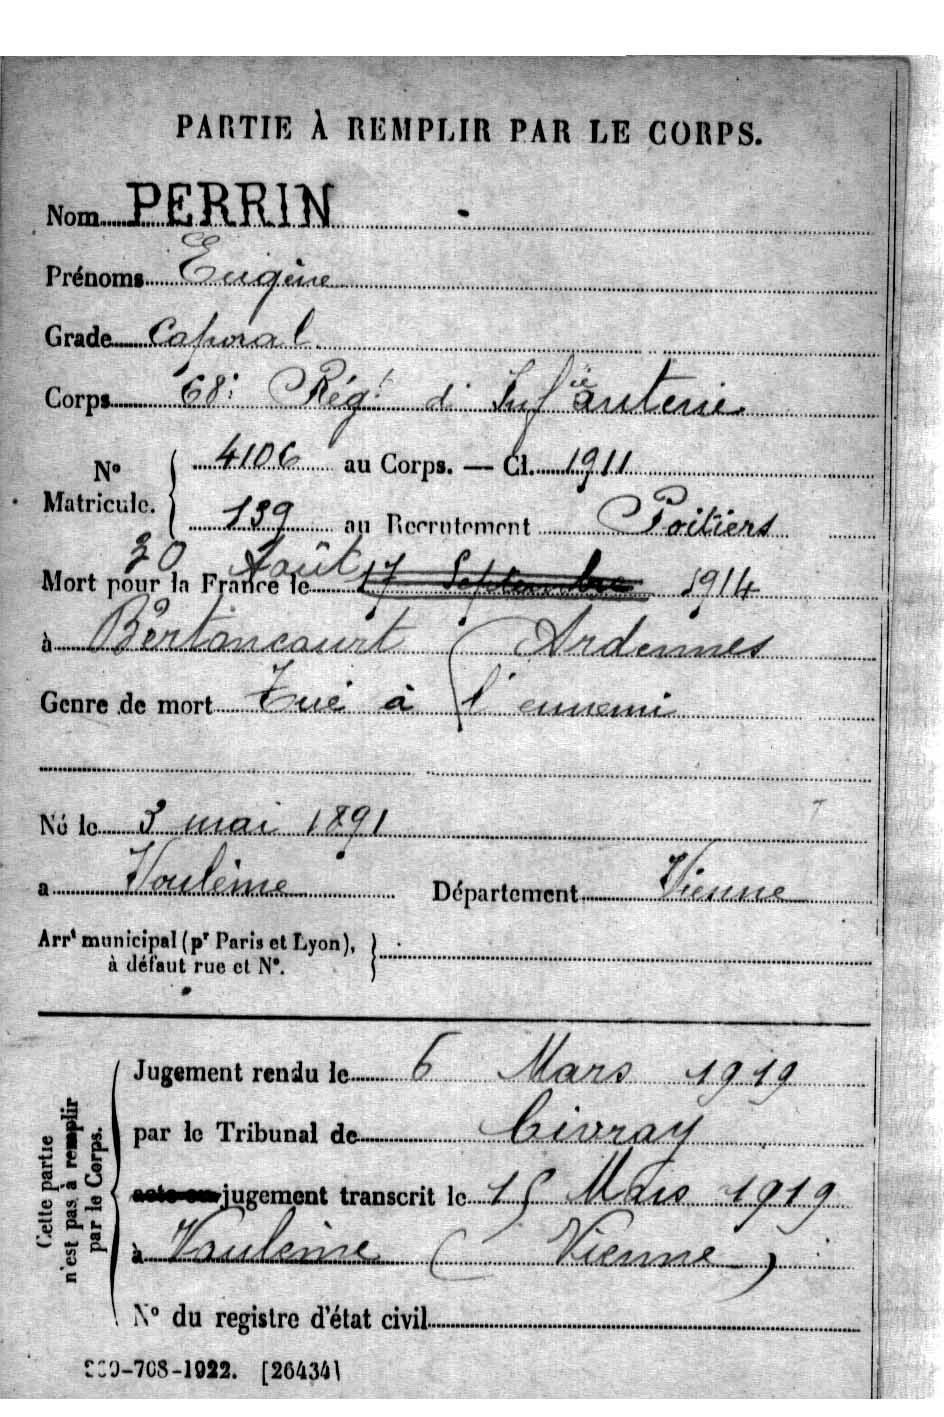 PARTIE À REMPLIR PAR LE CORPS.
Nom PERRIN
Prénoms Eugène
Grade Caporal
Corps 68e Régt d'Infanterie
No Matricule. 4106 au Corps. — Cl. 1911
139 au Recrutement Poitiers
30 Août
Mort pour la France le 17 Septembre 1914
à Bertoncourt (Ardennes
Genre de mort Tué à l'ennemi
Né le 3 mai 1891
a Voulême Département Vienne
Arrt municipal (pr Paris et Lyon),
à défaut rue et No.
Cette partie
n'est pas à remplir
par le Corps.
Jugement rendu le 6 Mars 1919
par le Tribunal de Civray
acte ou jugement transcrit le 15 Mars 1919
à Voulême (Vienne)
No du registre d'état civil
-708-1922. [26434]